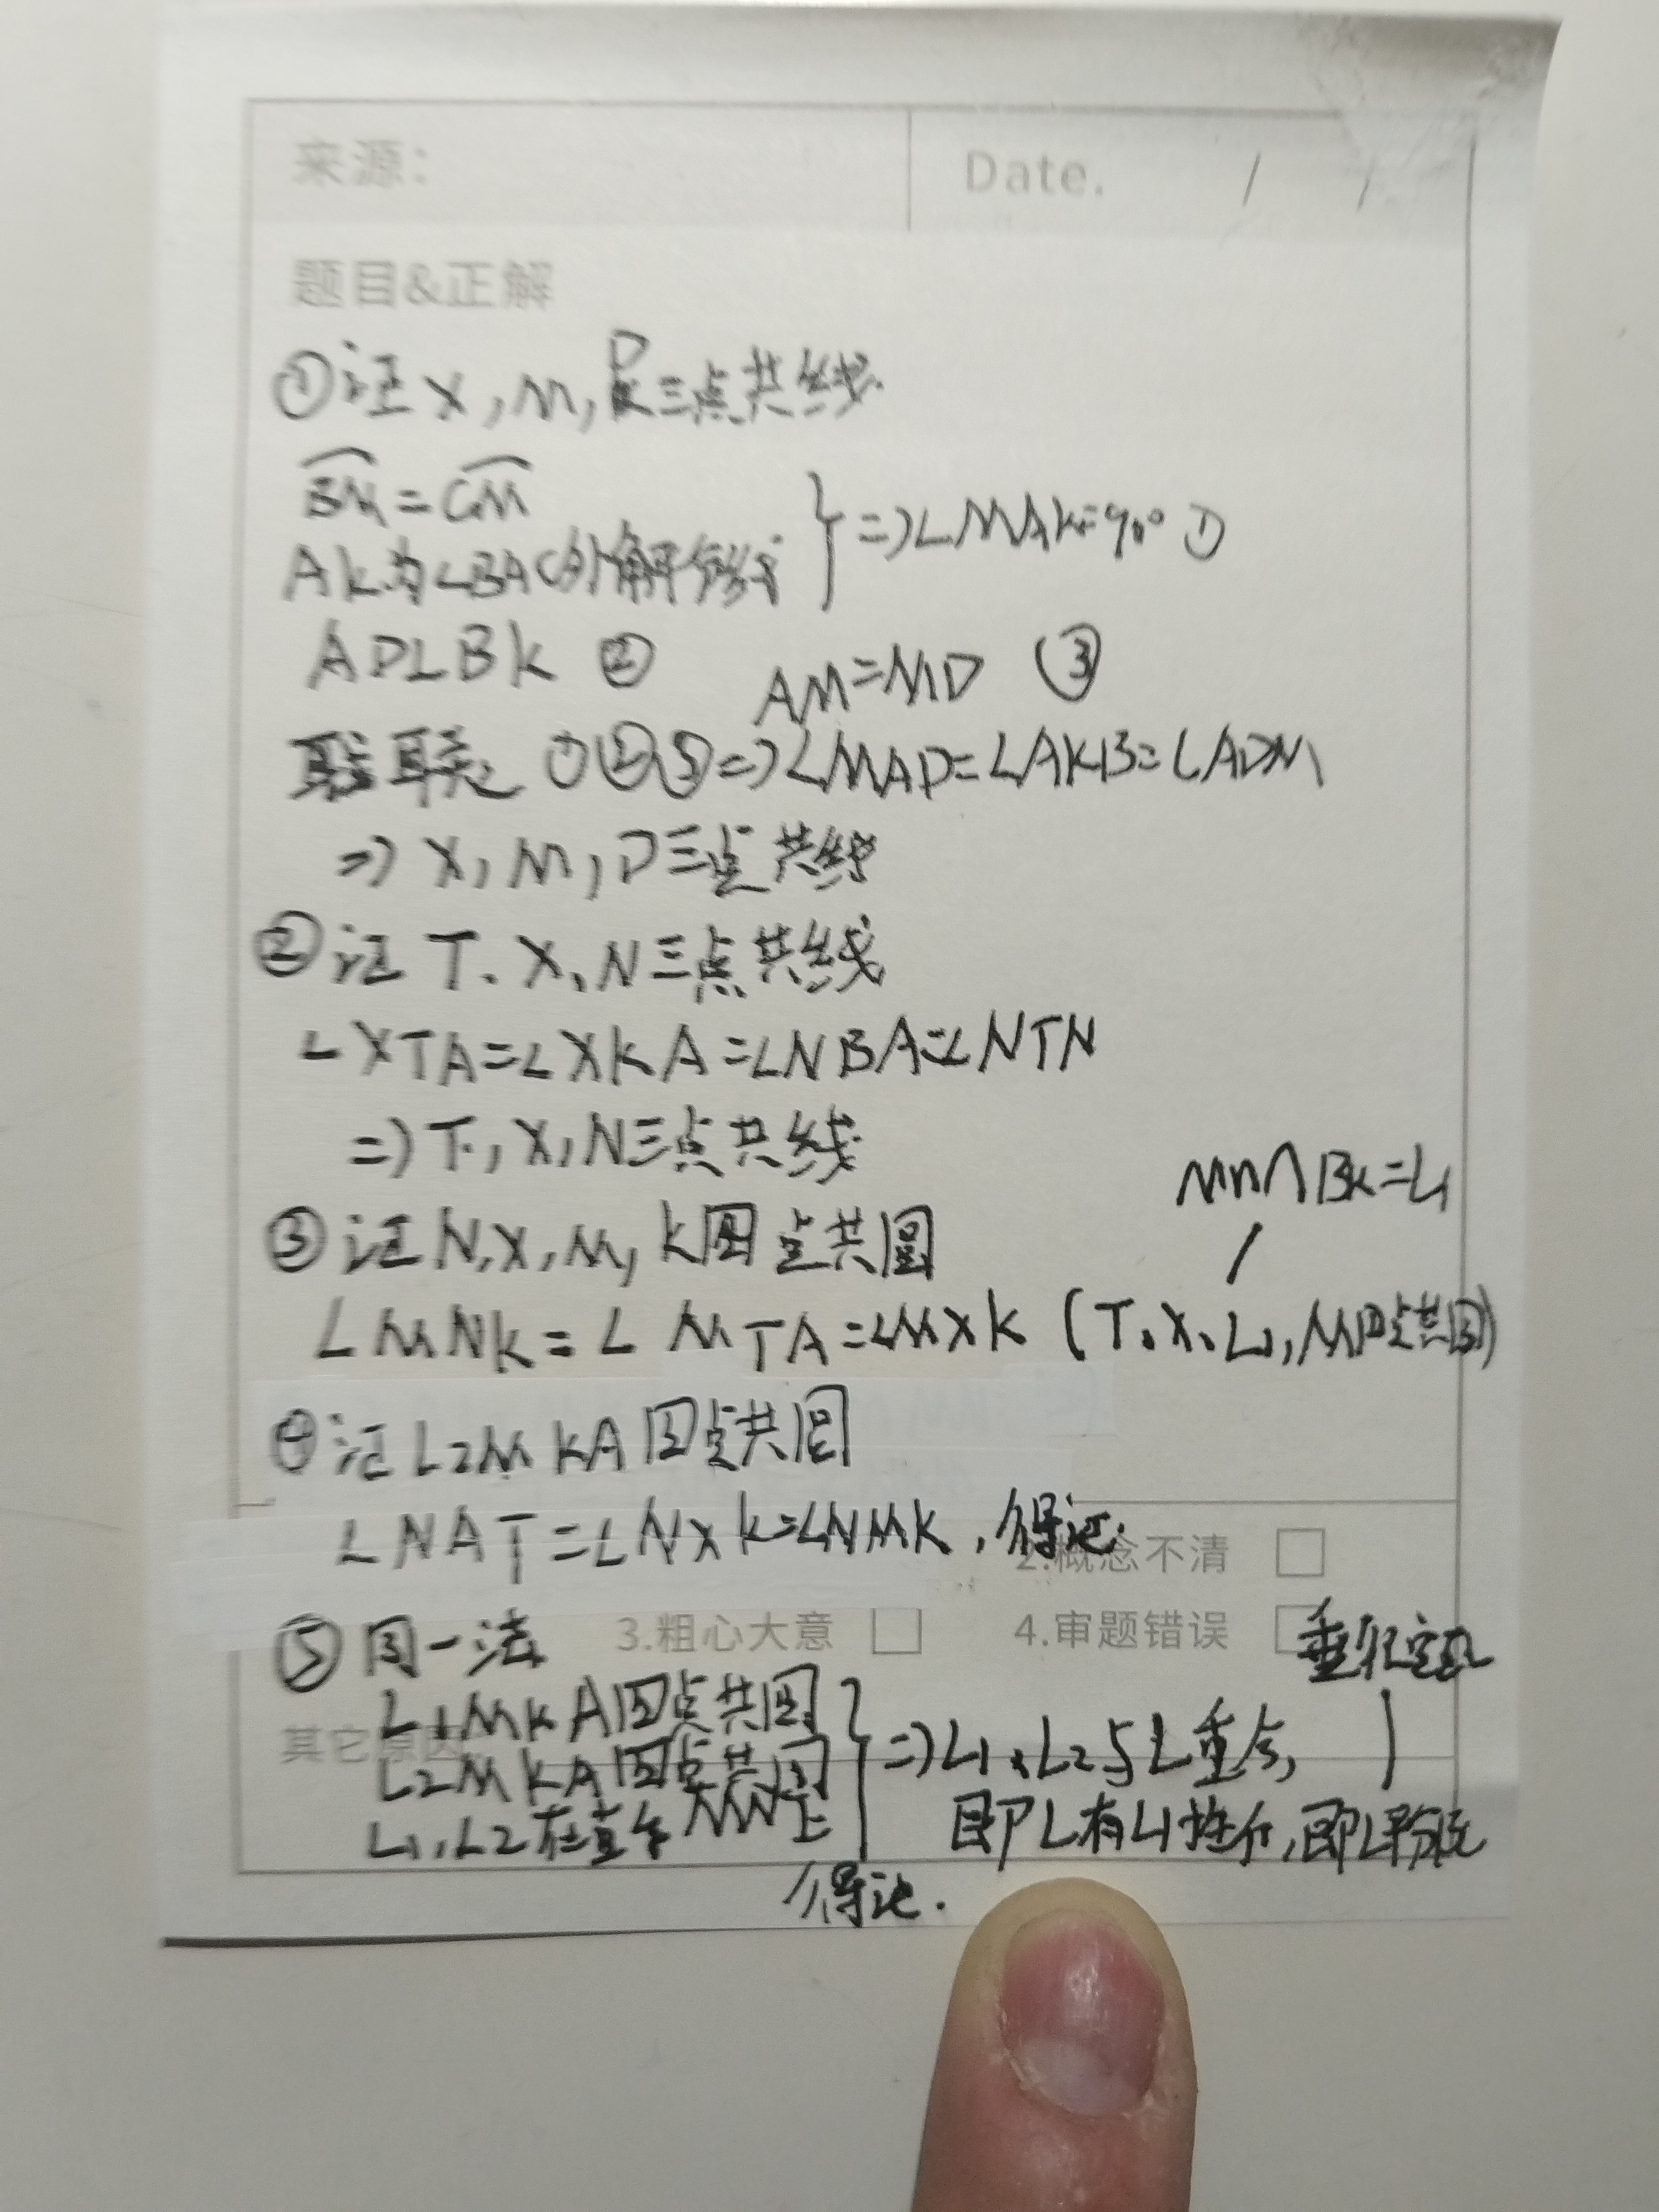 来源: Date. / /
题目&正解
①证X,M,D三点共线.
BM=CM
AK为∠BAC外角平分线 } =>∠MAK=90° ①
AD⊥BK ② AM=MD ③
联立①②③=>∠MAD=∠AKB=∠ADM
=> X,M,D三点共线
②证T.X,N三点共线
∠XTA=∠XKA=∠NBA=∠NTN
=>T,X,N三点共线
MN∩BK=L1
③证N,X,M,K四点共圆
∠MNK=∠MTA=∠MXK (T.X.L1,M四点共圆)
④证L2MKA四点共圆
∠NAT=∠NXK=∠NMK,得证.
2.概念不清
⑤同一法 3.粗心大意 4.审题错误 垂径定理
L1MKA四点共圆
其它原因
L2MKA四点共圆 } =>L1、L2与L重合,
L1,L2在直线MN上 即L有L1性质,即L
得证.